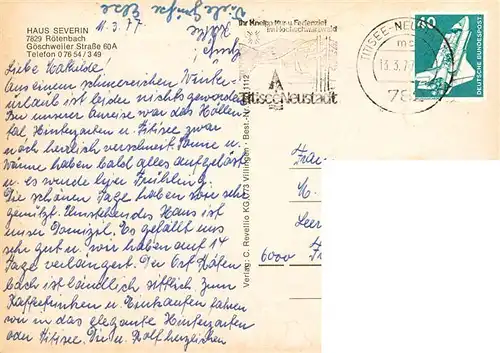 HAUS SEVERIN
7829 Rötenbach
Göschweiler Straße 60A
Telefon 0 76 54 / 3 49
11.3.77
Liebe Mathilde!
Aus einem schneereichen Winter-
urlaub ist leider nichts geworden.
Bei unserer Anreise war das Höllen-
tal, Hinterzarten u. Titisee zwar
noch herrlich verschneit. Sonne u.
Wärme haben bald alles aufgelöst
u. es wurde hier Frühling.
Die schönen Tage haben wir sehr
genützt. Umstehendes Haus ist
unser Domizil. Es gefällt uns
sehr gut u. wir haben auf 14
Tage verlängert. Der Ort Röten-
bach ist ländlich sittlich. Zum
Kaffeetrinken u. Einkaufen fahren
wir in das elegante Hinterzarten
oder Titisee. Dir u. Rolf herzlichen
Viele Grüße
Verlag: C. Revellio KG, 773 Villingen · Best.-Nr.
Ihr Kneipp-Kur u. Ferienziel
im Hochschwarzwald
Titisee-Neustadt
TITISEE-NEU
13.3.77
782
60
DEUTSCHE BUNDESPOST
Frau
M.
Leer
6000 F